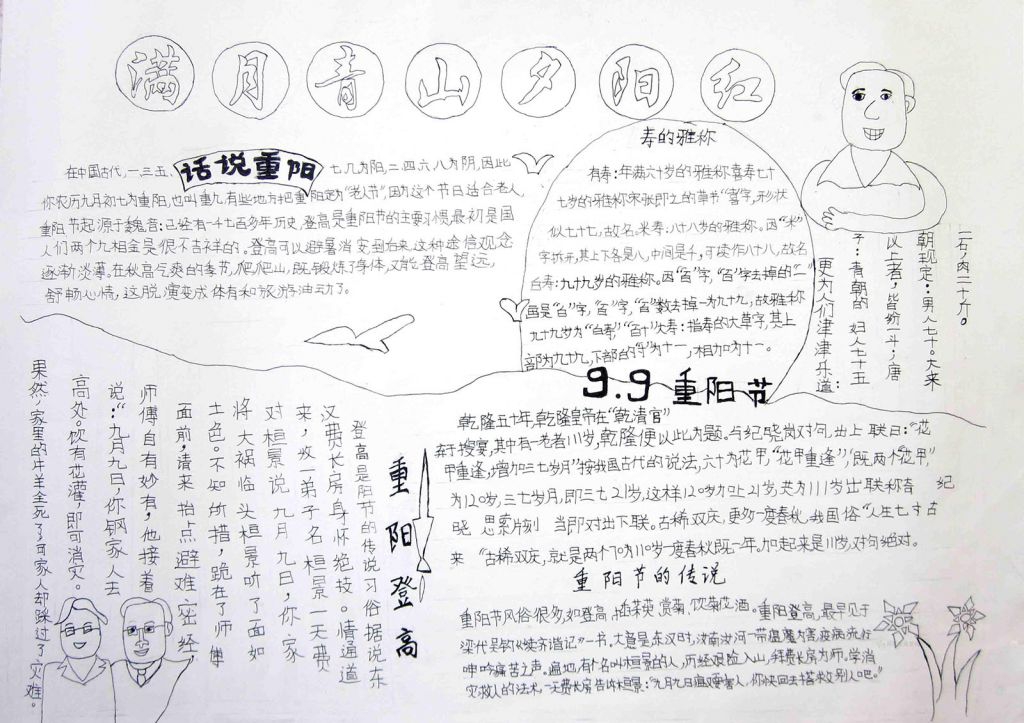 满月青山夕阳红
话说重阳
在中国古代,一三五、七九为阳,二四六八为阴,因此
你农历九月初七为重阳,也叫重九,有些地方把重阳定为"老人节",因为这个节日适合老人,
重阳节起源于魏晋:已经有一千七百多年历史,登高是重阳节的主要习惯,最初是国
人们两个九相金是很不吉祥的。登高可以避暑消灾
这种迷信观念
逐渐淡薄,在秋高气爽的季节,爬爬山,既锻炼了身体,又能登高望远,
舒畅心情,这脱演变成体育和旅游活动了。
寿的雅称
有寿:年满六十岁的雅称喜寿七十
七岁的雅称宋张即之的草书"喜字,形状
似七十七,故名,米寿:八十八岁的雅称。因"米"
字拆开,其上下各是八,中间是十,可读作八十八,故名
白寿:九十九岁的雅称。因"百"字,"百"字去掉的"一"
画是"白"字,"百"字,"百"数去掉一为九十九,故雅称
九十九岁为"白寿""百十"大寿:指寿的大草字,其上
部为九十九,下部的字"为十一,相加为十一。
一石,肉二十斤。
朝现定:男人七十。大来
以上者,皆纷一斗;唐
子:青朝的 妇人七十五
更为人们津津乐道:
9.9重阳节
乾隆五十年,乾隆皇帝在"乾清官"
宴,其中有一老者川岁,乾隆便以此为题。与纪晓岚对句,出上联曰:"花
甲重逢,增加三七岁月"按我国古代的说法,六十为花甲,"花甲重逢",既两个"花甲",
为120岁,三七岁月,即三七21岁,这样120岁加上21岁,共为111岁出联称奇 纪
晓 思索片刻 当即对出下联。古稀双庆,更多一度春秋,我国俗"人生七十古
来 "古稀双庆,就是两个70为110岁一度春秋既一年,加起来是川岁,对句绝对。
重阳节的传说
重阳节风俗很多,如登高,插茱萸,赏菊,饮菊花酒。重阳登高,最早见于
梁代吴钧《续齐谐记》一书,大意是东汉时,汝南汝河一带瘟魔为害,疫病流行
呻吟痛苦之声。遍地,有个名叫桓景的人,历经艰险入山,拜费长房为师,学消
灾救人的法术,一天费长房告诉桓景:"九月九日瘟魔要害人,你快回去搭救别人吧。"
重阳登高
登高是阳节的传说习俗据说东
汉费长房身怀绝技。情通道
来,收一弟子名桓景一天费
对桓景说九月九日,你家
将大祸临头桓景听了面如
土色。不知所措,跪在了师
面前,请来抬点避难密经
师傅自有妙有,他接着
说:"九月九日,你钢家人去
高处。饮有花灌,即可消灾。
果然,家里的牛羊全死了了可家人却躲过了灾难。